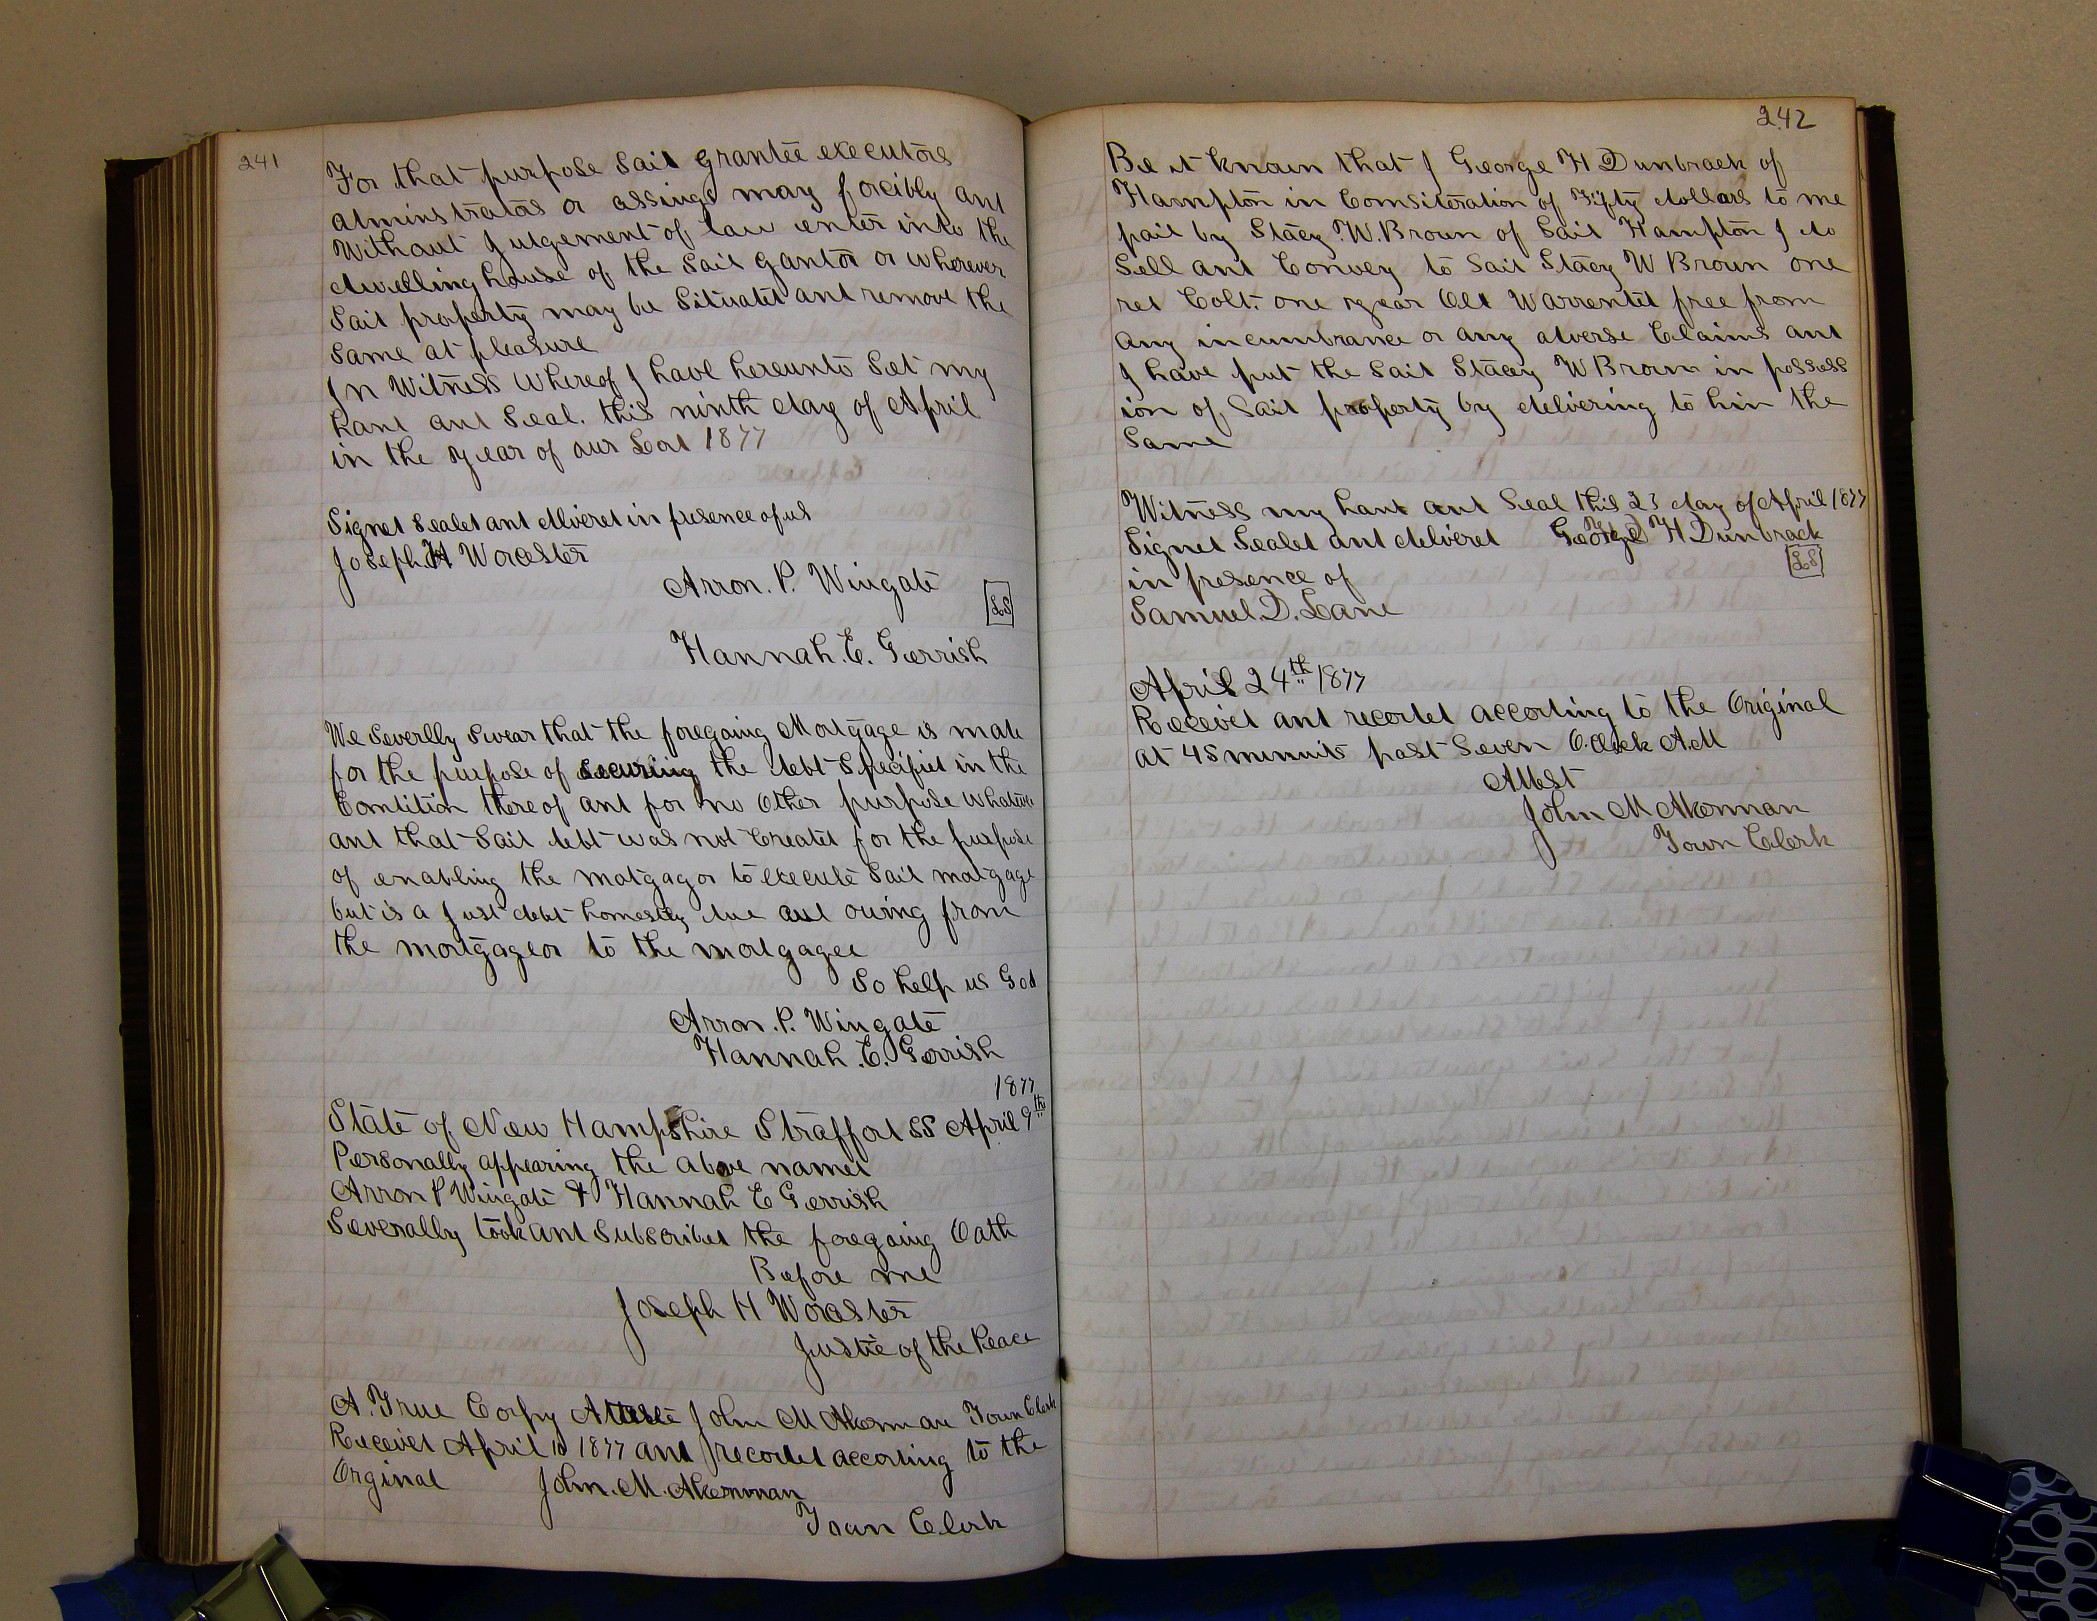 241
For that purpose Said grantee executors
adminstrators or assings may forcibly and
Without Judgement of law enter into the
dwelling house of the Said gantor or wherever
Said property may be Situated and remove the
Same at pleasure
In Witness Whereof I have hereunto Set my
hand and Seal. this ninth day of April
in the year of our Lord 1877
Signed Sealed and dlivered in presence of us
Joseph H Worcester
Arron. P. Wingate
LS
Hannah. E. Gerrish
We Severlly Swear that the foregoing Mortgage is made
for the purpose of securing the debt Specified in the
Condition thereof and for no Other purpose whatever
and that Said debt was not Created for the purpose
of enabling the motgagor to execute Said morgage
but is a Just debt honestly due and owing from
the mortgageor to the mortgagee
So help us God
Arron. P. Wingate
Hannah. E. Gerrish
1877
State of New Hampshire Strafford SS April 9th
Personally appearing the above named
Arron P Wingate & Hannah E Gerrish
Severally took and Subscribed the foregoing Oath
Before me
Joseph H Worcester
Justice of the Peace
A. True Copy Atteste John M Akerman Town Clerk
Received April 10 1877 and recorded according to the
Orginal John. M. Akerman
Town Clerk
242
Be it known that I George H Dunbrack of
Hampton in Consideration of Fifty dollars to me
paid by Stacy. W. Brown of Said Hampton I do
Sell and Convey to Said Stacy W Brown one
red Colt. one year Old Warrented free from
any incumbrance or any adverse Claims and
I have put the Said Stacey W Brown in possess
ion of Said property by delivering to him the
Same
Witness my hand and Seal this 23 day of April 1877
Signed Sealed and delivered George H Dunbrack
LS
in presence of
Samuel. D. Lane
April 24th 1877
Received and recorded according to the Original
at 45 minuits past Seven O.clock A.M
Attest
John M Akerman
Town Clerk